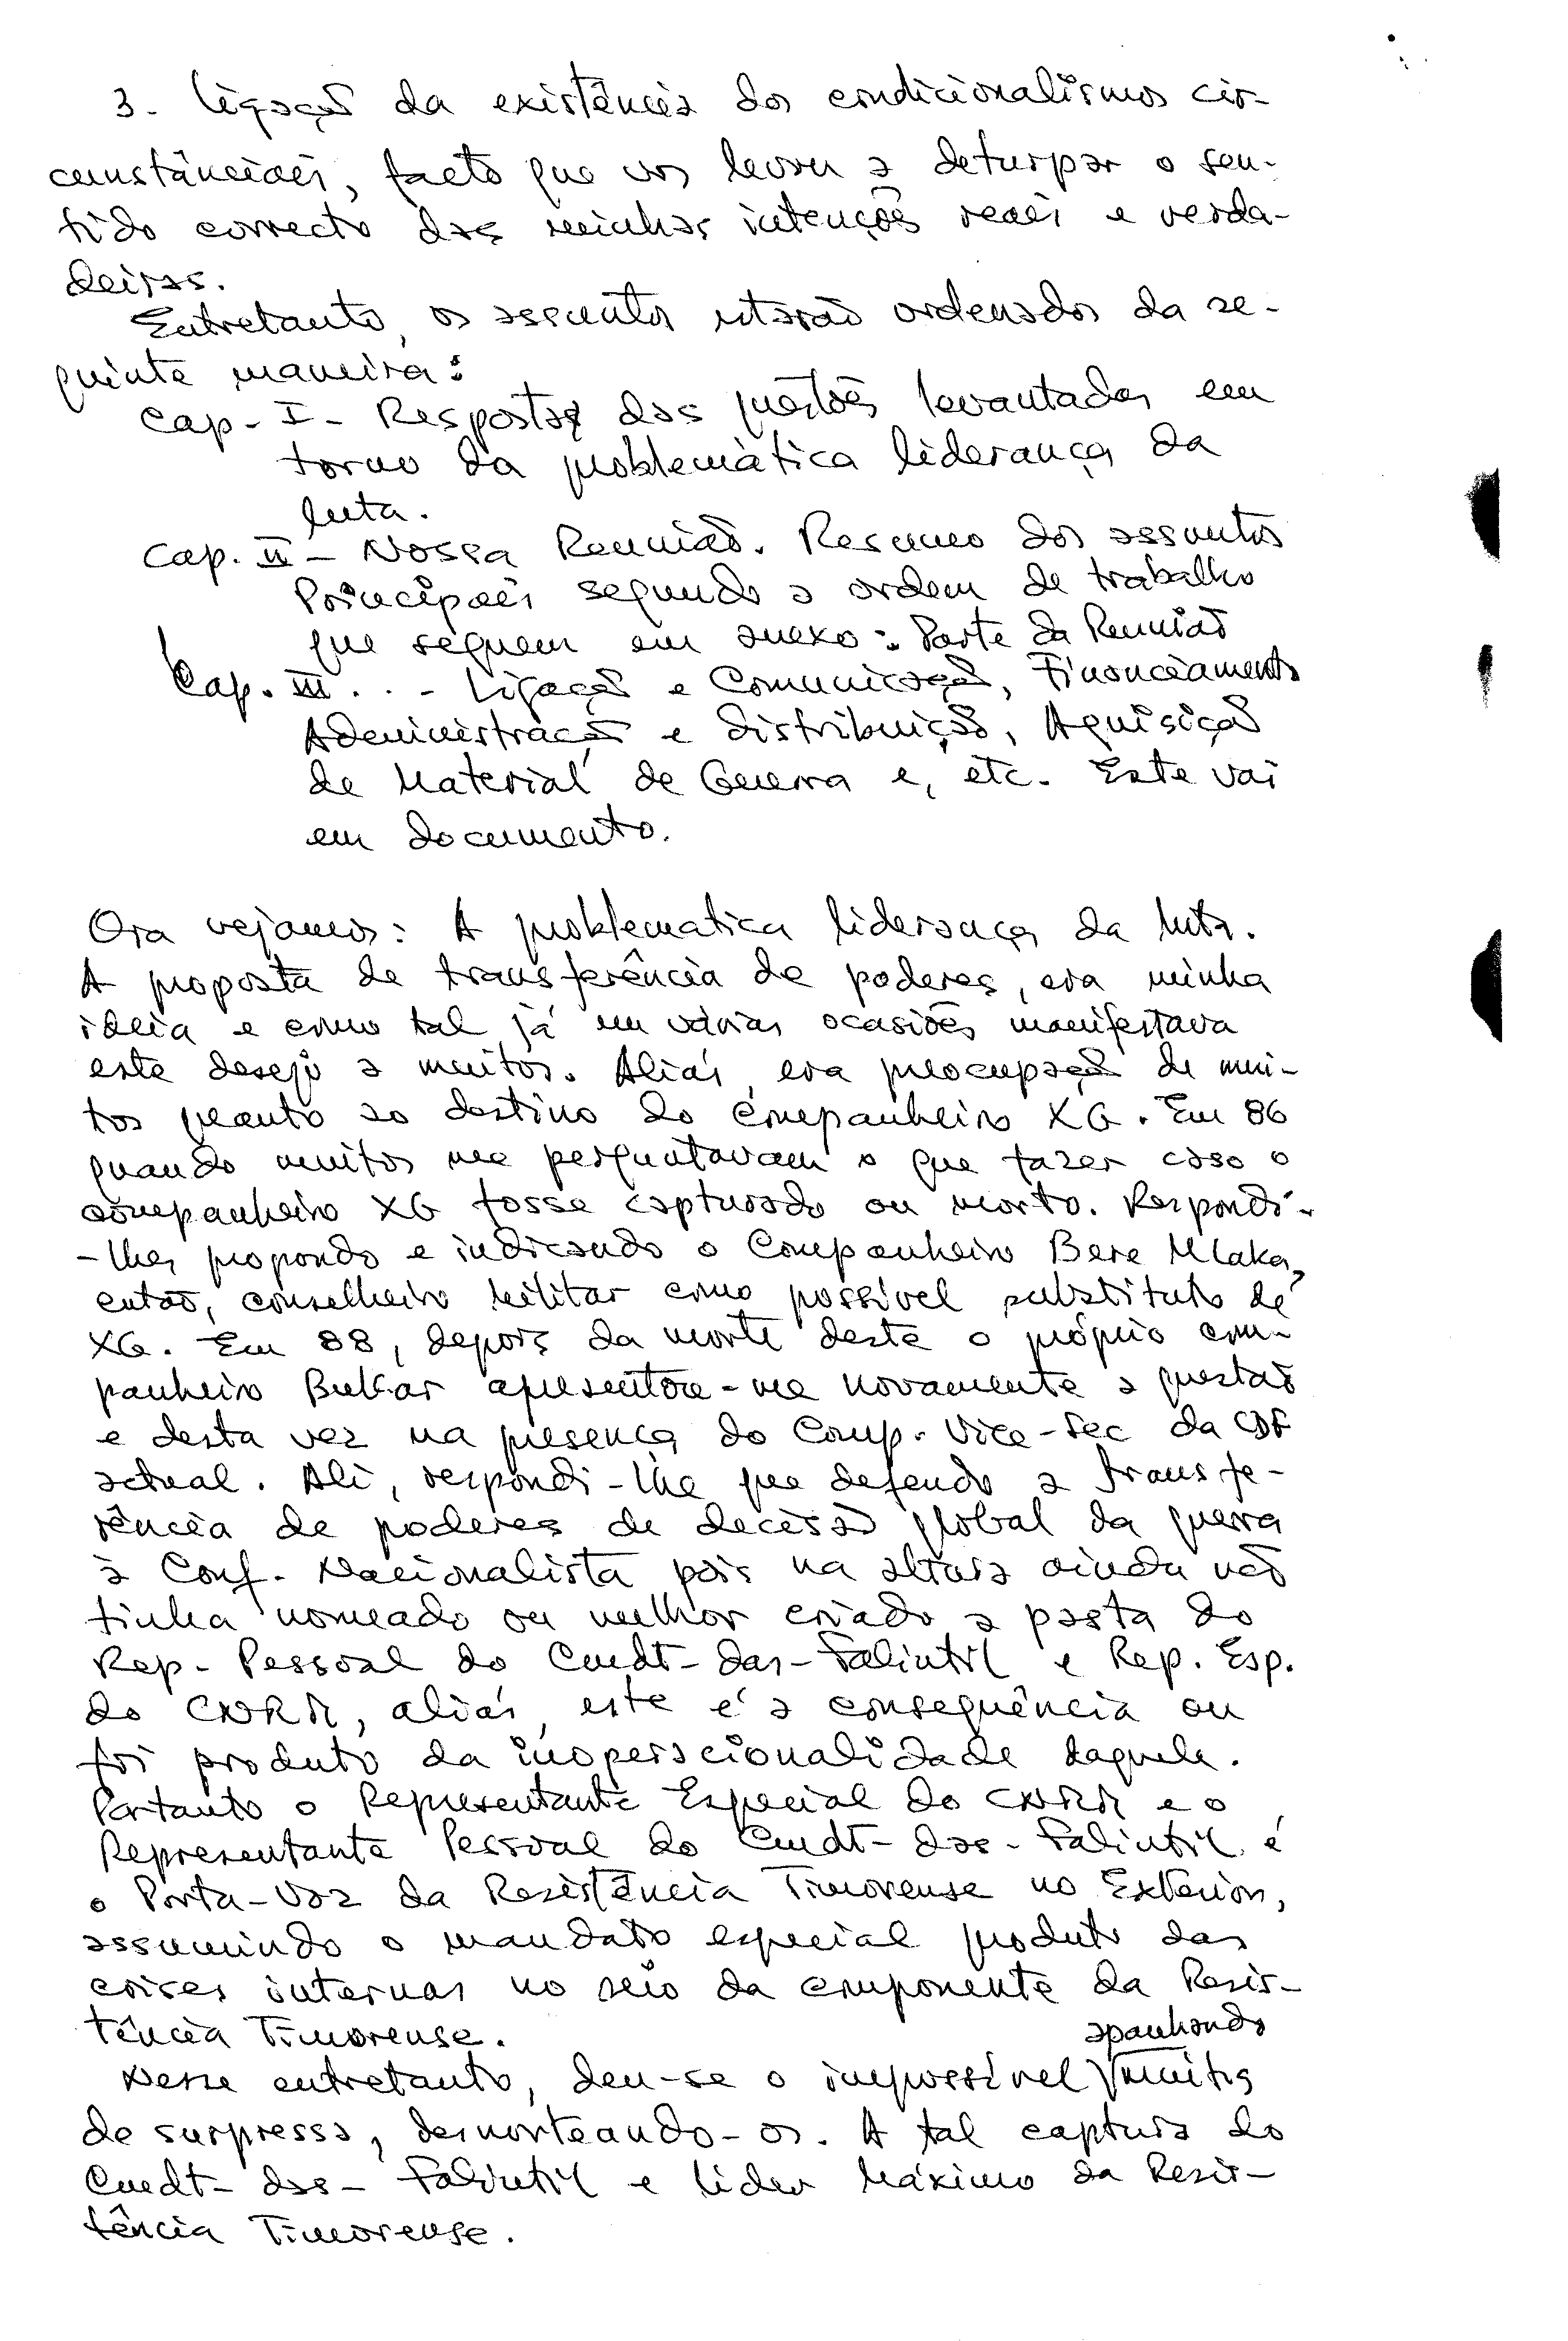 3. Ligação da existência dos condicionalismos cir-
cunstânciais, facto que vos levou a deturpar o sen-
tido correcto das minhas intenções reais e verda-
deiras.
Entretanto, os assuntos estarão ordenados da se-
guinte maneira:
Cap. I - Respostas das questões levantadas em
torno da problemática liderança da
luta.
Cap. II - Nossa Reunião. Resumo dos assuntos
Principais segundo a ordem de trabalho
que seguem em anexo: Parte da Reunião
Cap. III . . - Ligação e Comunicação, Financiamento
Administração e distribuição, Aquisição
de Material de Guerra e, etc. Este vai
em documento.
Ora vejamos: A problematica liderança da luta.
A proposta de transferência de poderes, era minha
ideia e como tal já em várias ocasiões manifestava
este desejo a muitos. Aliás, era preocupação de mui-
tos quanto ao destino do Companheiro XG. Em 86
quando muitos me perguntavam o que fazer caso o
companheiro XG fosse capturado ou morto. Respondi-
-lhes propondo e indicando o Companheiro Bere Mlaka,
então, conselheiro Militar como possível substituto de
XG. Em 88, depois da morte deste o próprio com-
panheiro Bulfar apresentou-me novamente a questão
e desta vez na presença do Comp. Vice-Sec da CDF
actual. Ali, respondi-lhe que defendo a transfe-
rência de poderes de decisão global da guerra
à Conf. Nacionalista pois na altura ainda não
tinha nomeado ou melhor criado a pasta do
Rep. Pessoal do Cmdt-das-Falintil e Rep. Esp.
do CNRM, aliás, este é a consequência ou
foi produto da inoperacionalidade daquele.
Portanto o Representante Especial do CNRM e o
Representante Pessoal do Cmdt-das-Falintil é
o Porta-Voz da Resistência Timorense no Exterior,
assumindo o mandato especial produto das
crises internas no seio da componente da Resis-
tência Timorense.
apanhando
Nesse entretanto, deu-se o impossível √muitos
de surpresa, desnorteando-os. A tal captura do
Cmdt-das-Falintil e lider Máximo da Resis-
tência Timorense.